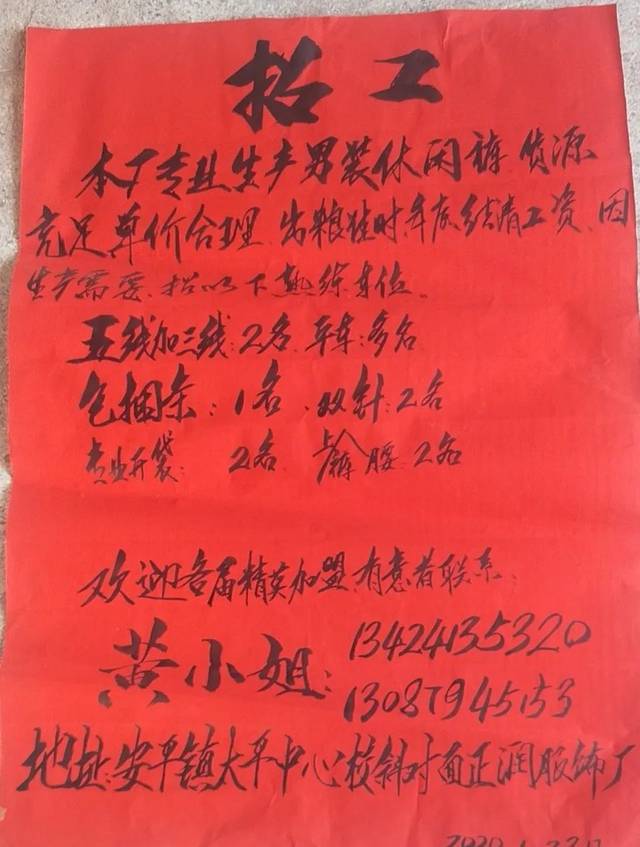 招工
本厂专业生产男装休闲裤,货源
充足,单价合理,出粮准时,年底结清工资,因
生产需要,招以下熟练车位。
五线加三线:2名,平车:多名
包捆条:1名、双针:2名
专业开袋:2名、上裤腰:2名
欢迎各届精英加盟,有意者联系:
黄小姐:13424135320
13087945153
地址:安平镇大平中心校斜对面正润服饰厂